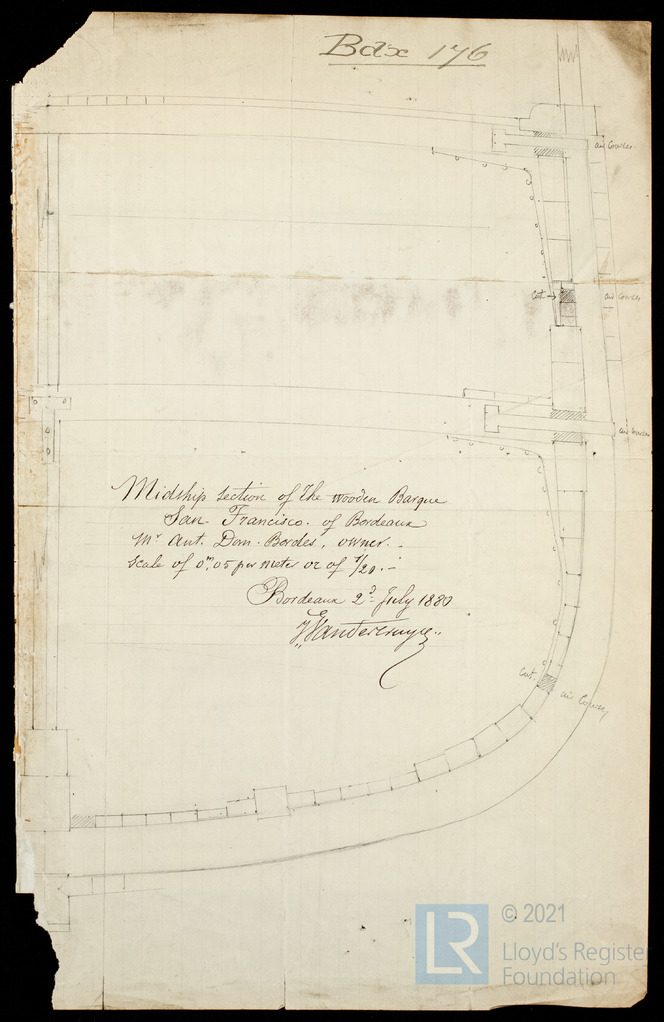 Bdx 176
air Courses
Cut
air Courses
air Courses
Midship section of the wooden Barque
San Francisco. of Bordeaux
Mr Ant. Dom. Bordes, owner. -
Scale of 0m,05 per meter or of 1/20. -
Bordeaux 2d July 1880
Cut.
air
LR
© 2021
Lloyd's Register
Foundation